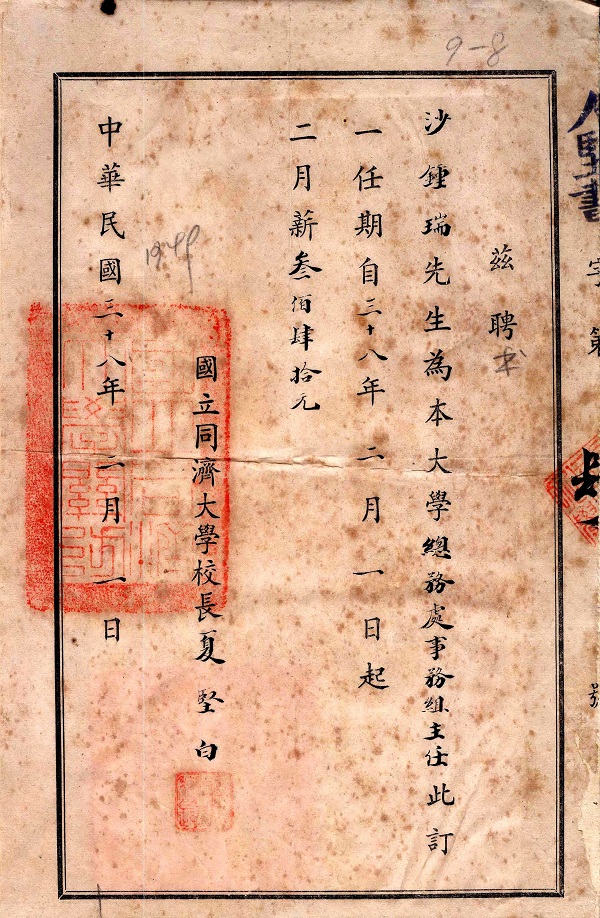 9-8
字第
號
茲聘
沙鍾瑞先生為本大學總務處事務組主任此訂
一任期自三十八年二月一日起
二月薪叁佰肆拾元
國立同濟大學校長夏堅白
中華民國三十八年二月一日
1949